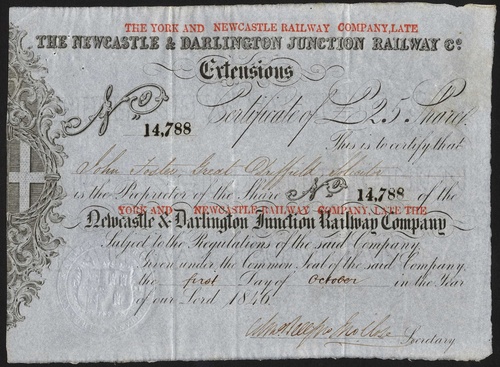 THE YORK AND NEWCASTLE RAILWAY COMPANY, LATE
THE NEWCASTLE & DARLINGTON JUNCTION RAILWAY Co.
Extensions
Certificate of £25 Share
No 14,788
This is to certify that
John Foster Great Driffield
is the Proprietor of the Share No 14,788 of the
YORK AND NEWCASTLE RAILWAY COMPANY, LATE THE
Newcastle & Darlington Junction Railway Company
Subject to the Regulations of the said Company
Given under the Common Seal of the said Company
the first Day of October in the Year
of our Lord 1846
Secretary